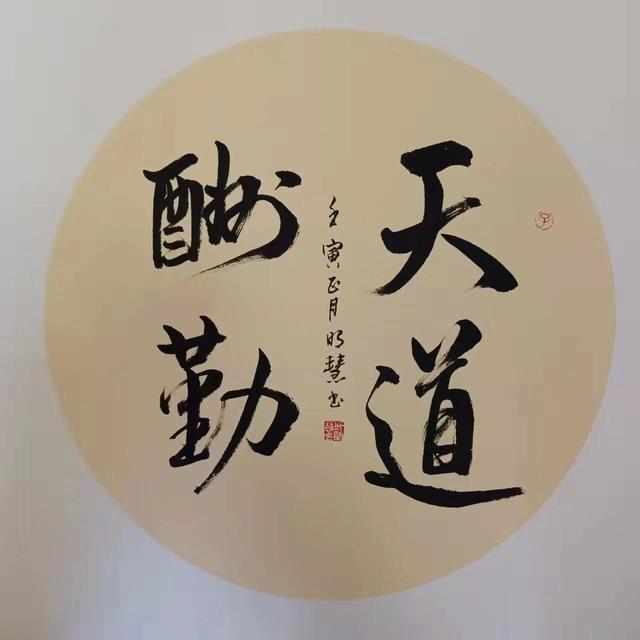 天道
酬勤
壬寅正月明慧书